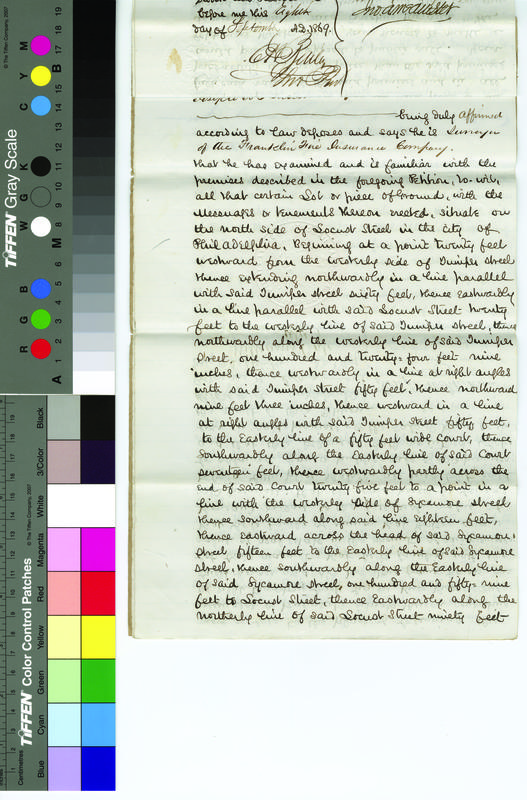 before me this eighth
day of September A.D. 1869.
being duly affirmed
according to law deposes and says he is Surveyor
of the Franklin Fire Insurance Company.
that he has examined and is familiar with the
premises described in the foregoing Petition, to-wit,
all that certain Lot or piece of Ground, with the
Messuages or tenements thereon erected, situate on
the north side of Locust Street in the City of
Philadelphia, Beginning at a point twenty feet
westward from the westerly side of Juniper street
thence extending northwardly in a line parallel
with said Juniper street sixty feet, thence Eastwardly
in a line parallel with said Locust Street twenty
feet to the westerly line of said Juniper street, thence
northwardly along the westerly line of said Juniper
Street, one hundred and twenty-four feet nine
inches, thence westwardly in a line at right angles
with said Juniper Street fifty feet, thence northward
nine feet three inches, thence westward in a line
at right angles with said Juniper Street fifty feet,
to the Easterly line of a fifty feet wide Court, thence
Southwardly along the Easterly line of said Court
seventeen feet, thence westwardly partly across the
end of said Court twenty five feet to a point in a
line with the westerly side of Sycamore street
thence Southward along said line Eighteen feet,
thence Eastward across the head of said Sycamore
Street fifteen feet to the Easterly line of said Sycamore
Street, thence Southwardly along the Easterly line
of said Sycamore Street, one hundred and fifty-nine
feet to Locust Street, thence Eastwardly along the
northerly line of said Locust Street ninety feet
TIFFEN Gray Scale
© The Tiffen Company, 2007
R G B W G K C Y M
A 1 2 3 4 5 6 M 8 9 10 11 12 13 14 15 B 17 18 19
TIFFEN Color Control Patches
© The Tiffen Company, 2007
Centimetres
Blue Cyan Green Yellow Red Magenta White 3/Color Black